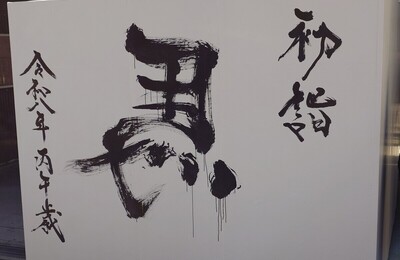 初詣
馬
令和八年 丙午歳